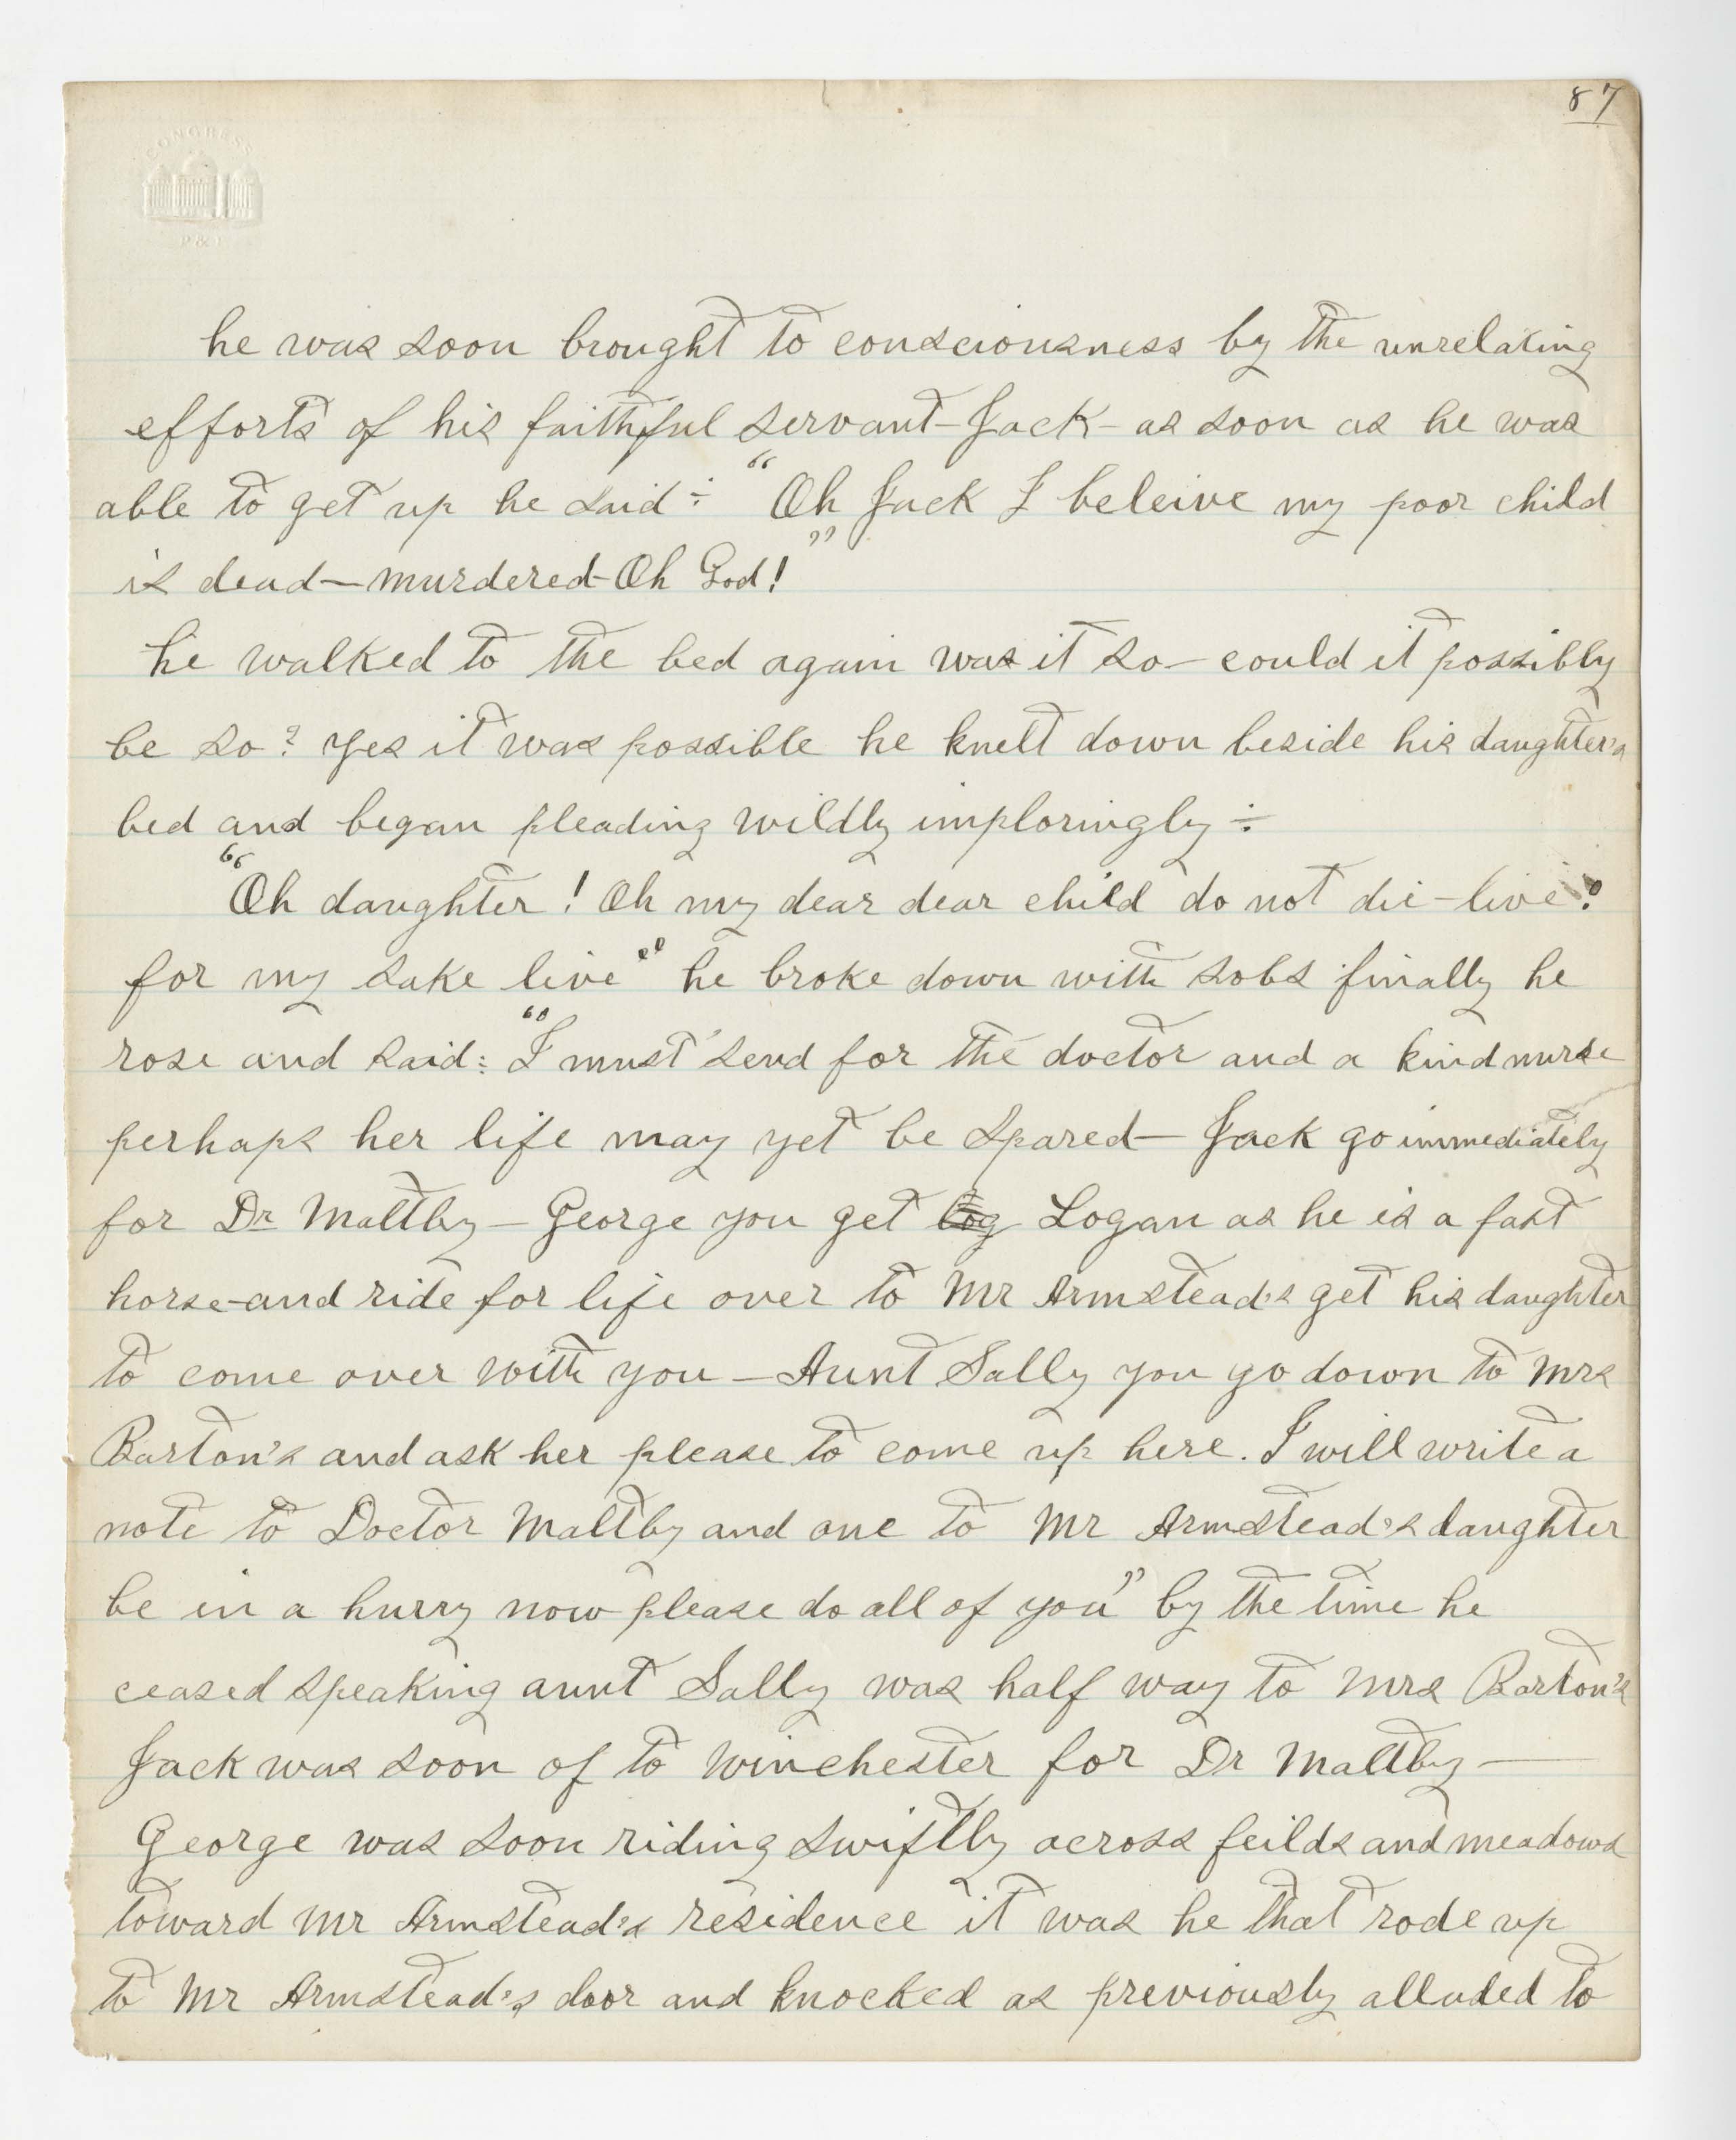 87
CONGRESS
P & P
he was soon brought to consciousness by the unrelaxing
efforts of his faithful servant-Jack- as soon as he was
able to get up he said÷ "Oh Jack I beleive my poor child
is dead—murdered-Oh God!"
he walked to the bed again was it so- could it possibly
be so? yes it was possible he knelt down beside his daughter's
bed and began pleading wildly imploringly÷
"Oh daughter! Oh my dear dear child do not die-live!
for my sake live" he broke down with sobs finally he
rose and said: "I must send for the doctor and a kind nurse
perhaps her life may yet be spared— Jack go immediately
for Dr Maltby—George you get log Logan as he is a fast
horse-and ride for life over to Mr Armstead's get his daughter
to come over with you—Aunt Sally you go down to Mrs
Barton's and ask her please to come up here. I will write a
note to Doctor Maltby and one to Mr Armstead's daughter
be in a hurry now please do all of you" by the time he
ceased speaking aunt Sally was half way to Mrs Barton's
Jack was soon of to Winchester for Dr Maltby—
George was soon riding swiftly across feilds and meadows
toward Mr Armstead's residence it was he that rode up
to Mr Armstead's door and knocked as previously alluded to